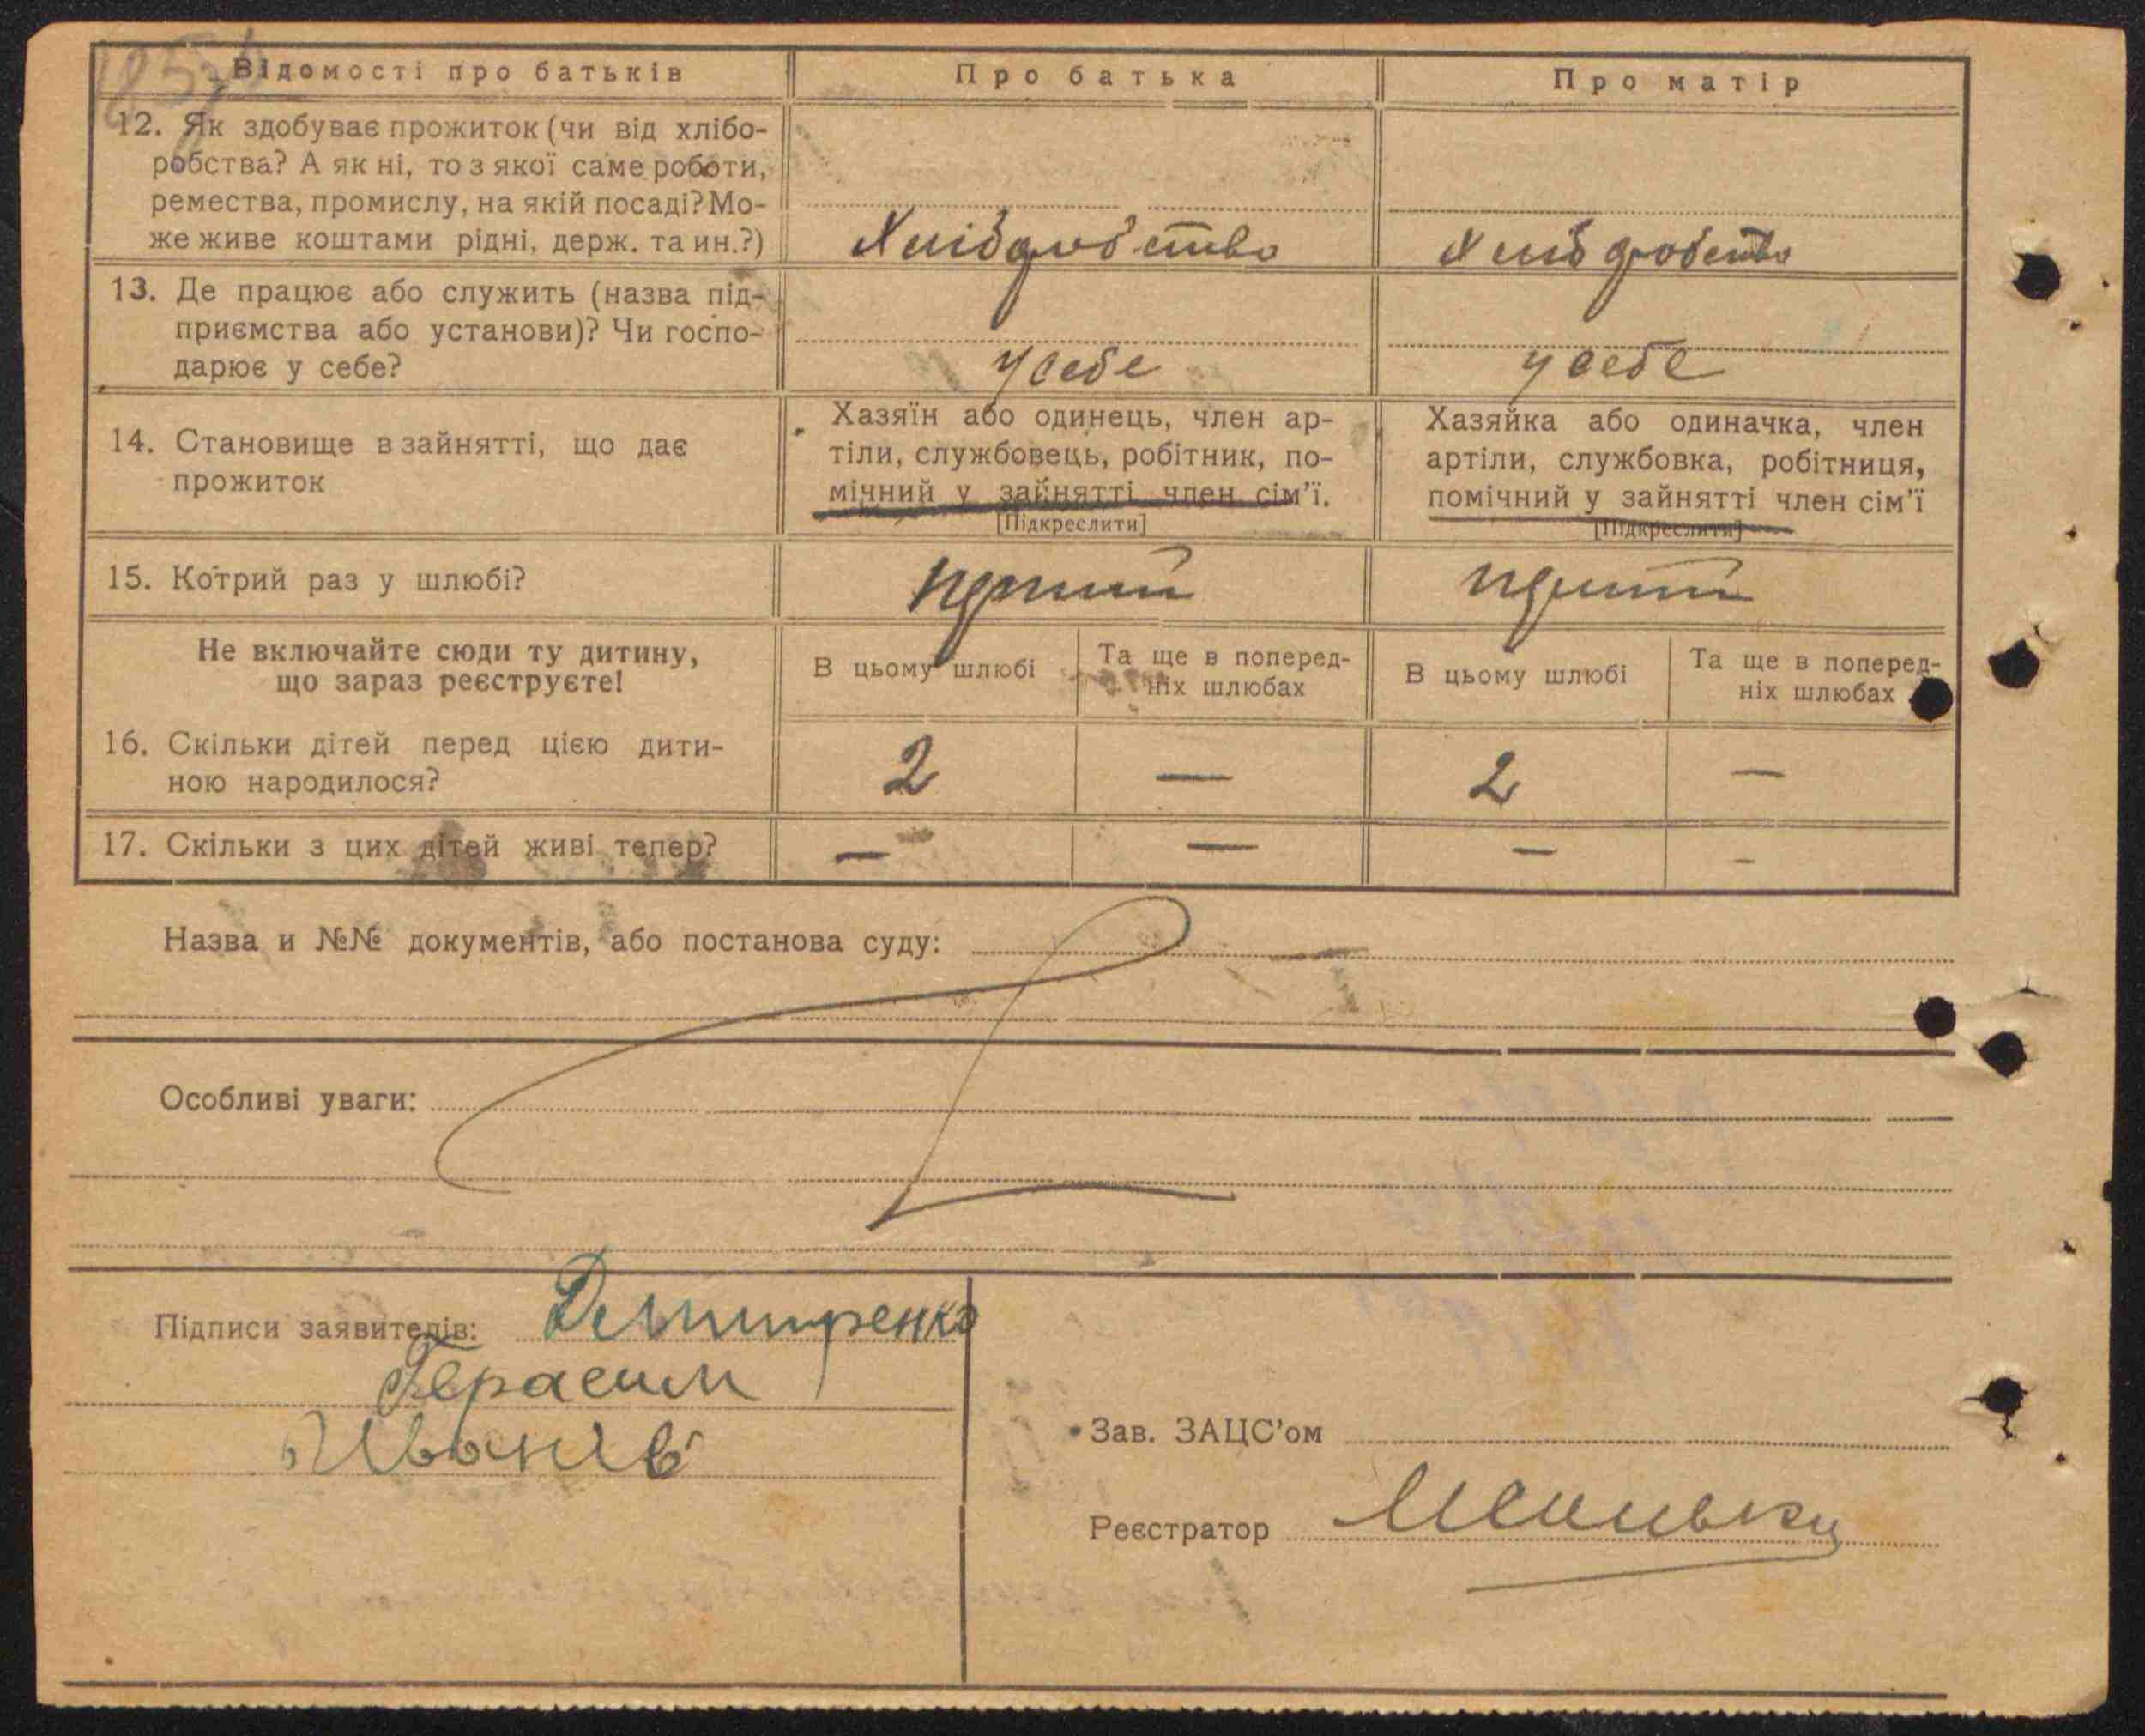 Відомості про батьків
Про батька
Про матір
12. Як здобуває прожиток (чи від хлібо-
робства? А як ні, то з якої саме роботи,
ремества, промислу, на якій посаді? Мо-
же живе коштами рідні, держ. та ин.?)
Хліборобство
Хліборобство
13. Де працює або служить (назва під-
приємства або установи)? Чи госпо-
дарює у себе?
у себе
у себе
14. Становище в зайнятті, що дає
прожиток
Хазяїн або одинець, член ар-
тіли, службовець, робітник, по-
мічний у зайнятті член сім'ї.
[Підкреслити]
Хазяйка або одиначка, член
артіли, службовка, робітниця,
помічний у зайнятті член сім'ї
[Підкреслити]
15. Котрий раз у шлюбі?
Не включайте сюди ту дитину,
що зараз реєструєте!
В цьому шлюбі
Та ще в поперед-
ніх шлюбах
В цьому шлюбі
Та ще в поперед-
ніх шлюбах
16. Скільки дітей перед цією дити-
ною народилося?
2 — 2 —
17. Скільки з цих дітей живі тепер?
— — — -
Назва и №№ документів, або постанова суду: —
Особливі уваги:
Підписи заявителів:
Герасим
Іванів
Зав. ЗАЦС'ом
Реєстратор